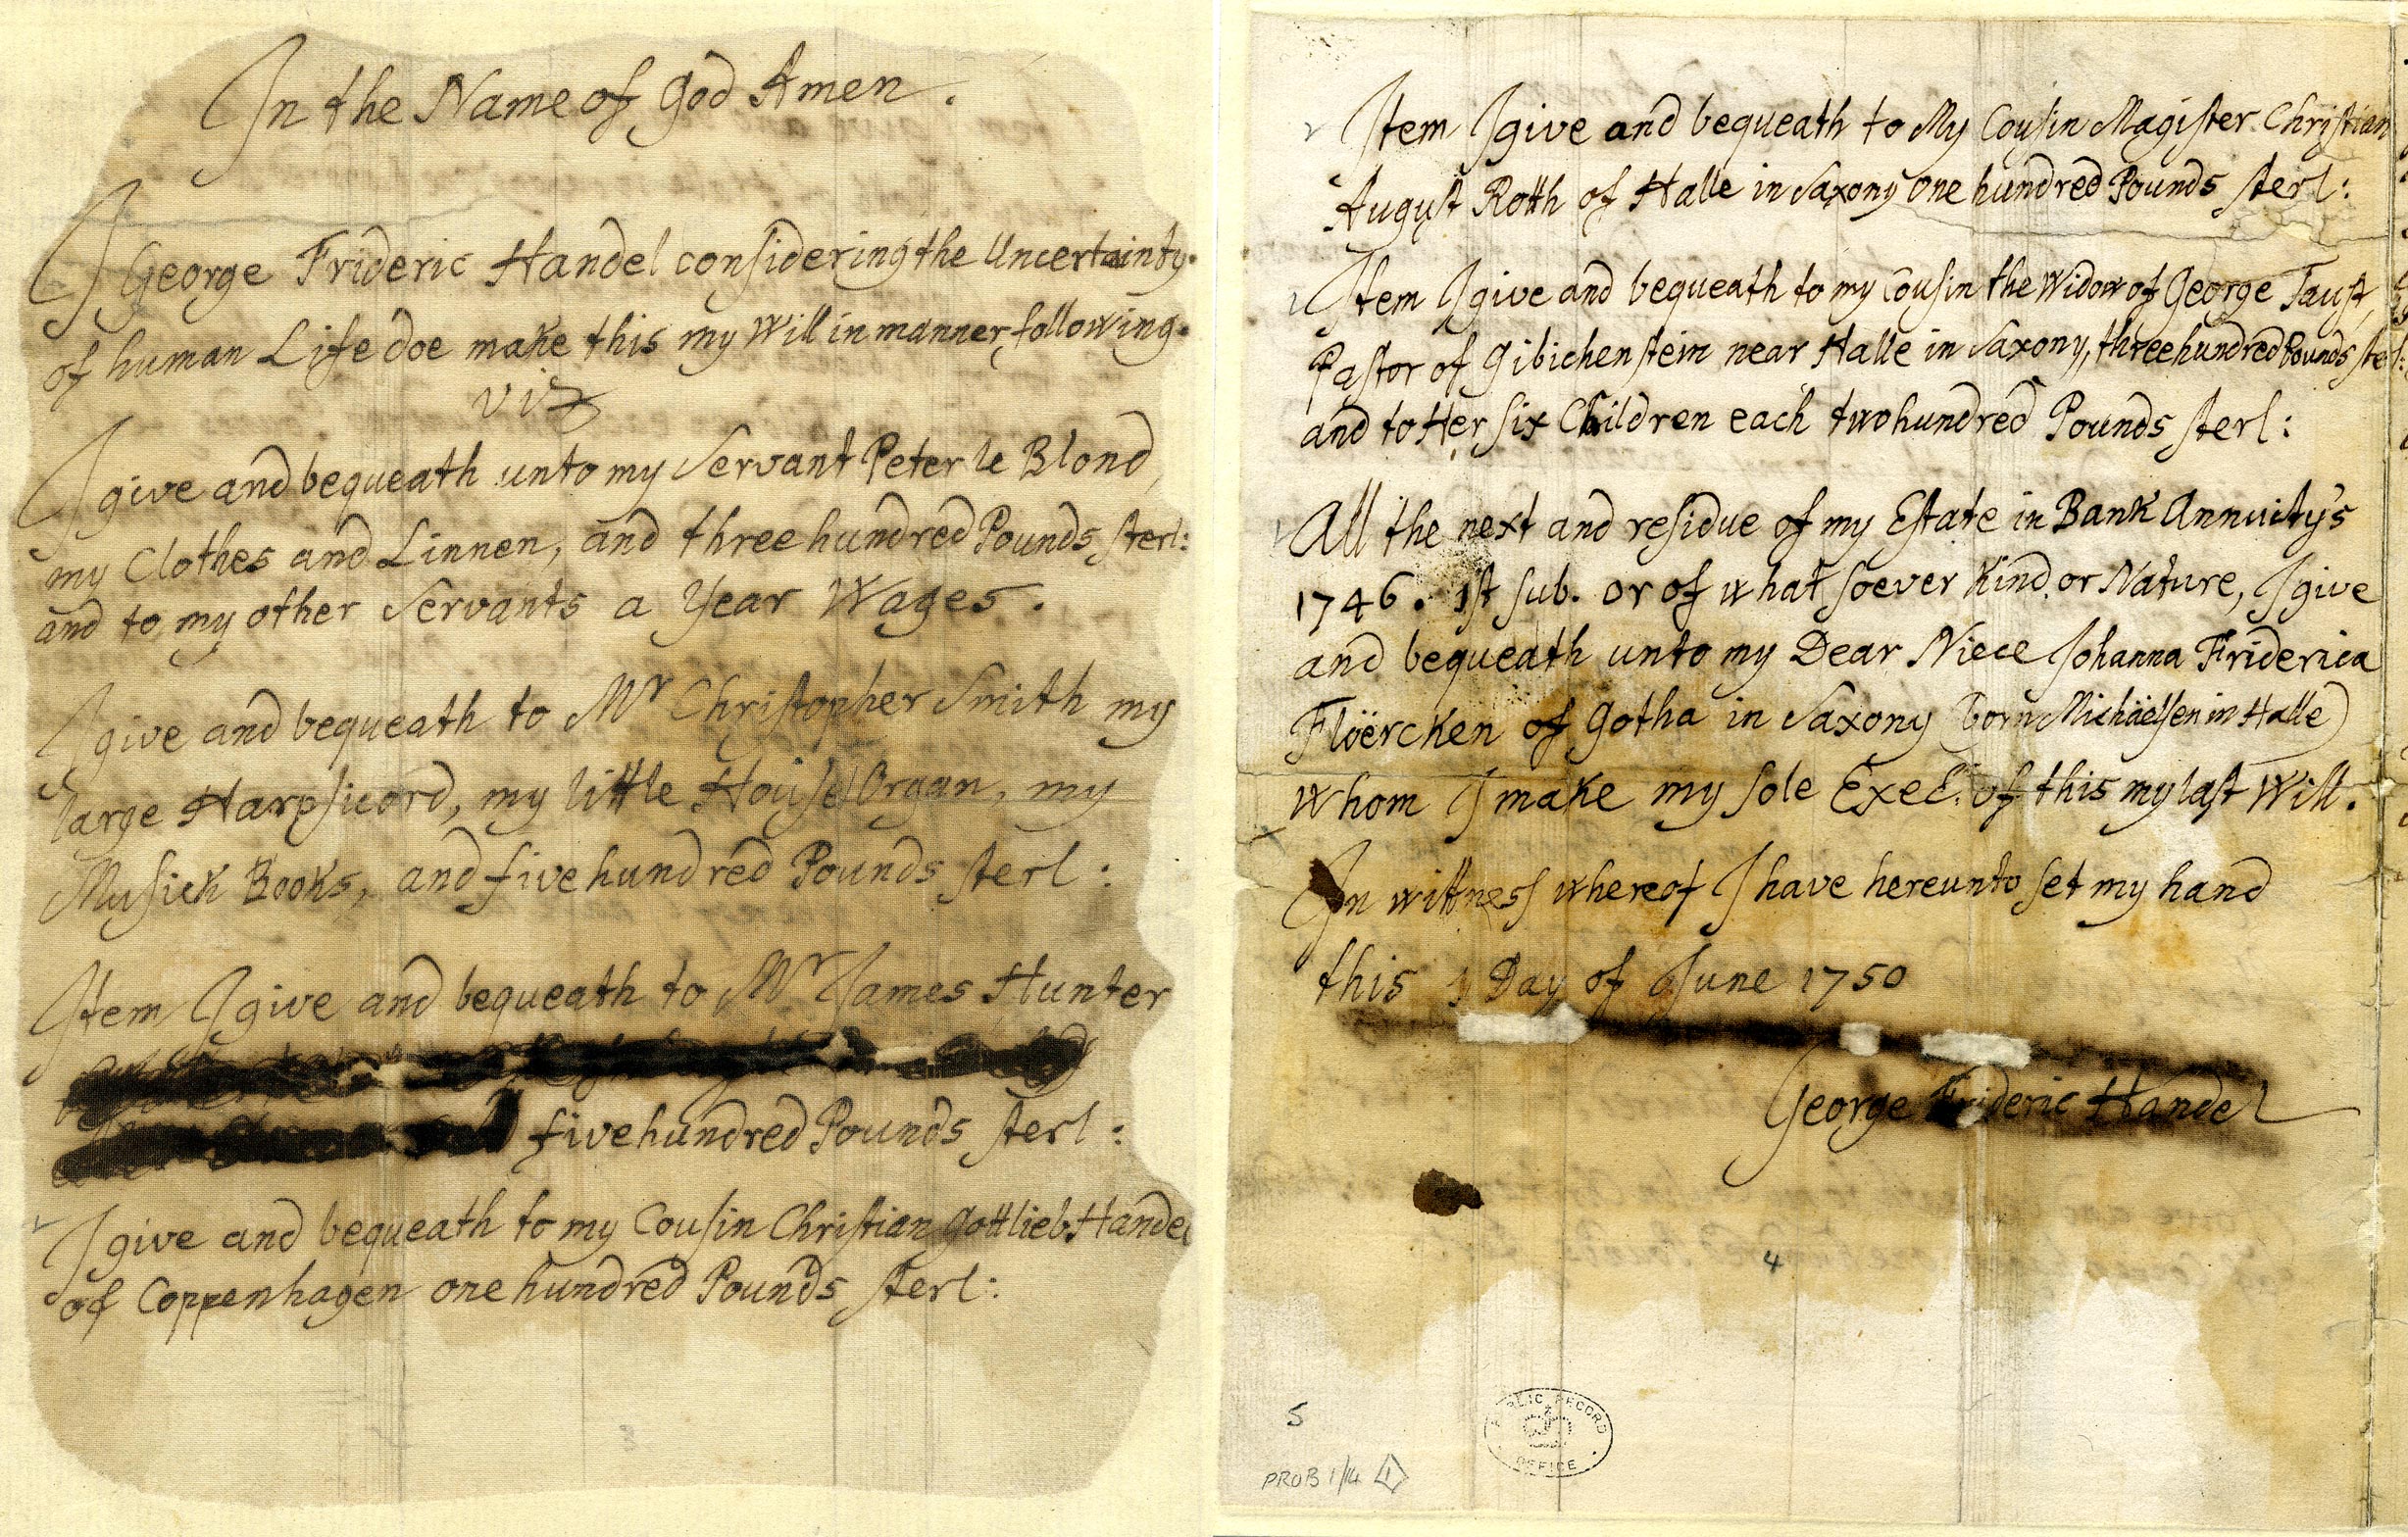 In the Name of God Amen.
I George Frideric Handel considering the Uncertainty
of human Life doe make this my Will in manner following
viz
I give and bequeath unto my Servant Peter le Blond,
my Clothes and Linnen, and three hundred Pounds sterl:
and to my other Servants a Year Wages.
I give and bequeath to Mr Christopher Smith my
large Harpsicord, my little House Organ, my
Musick Books, and five hundred Pounds sterl:
Item I give and bequeath to Mr James Hunter
five hundred Pounds sterl:
I give and bequeath to my Cousin Christian Gottlieb Handel
of Coppenhagen one hundred Pounds sterl:
3
Item I give and bequeath to My Cousin Magister Christian
August Rotth of Halle in Saxony one hundred Pounds sterl:
Item I give and bequeath to my Cousin the Widow of George Taust,
Pastor of Gibichenstein near Halle in Saxony, three hundred Pounds sterl:
and to Her six Children each two hundred Pounds sterl:
All the next and residue of my Estate in Bank Annuity's
1746. 1st sub. or of what soever Kind or Nature, I give
and bequeath unto my Dear Niece Johanna Friderica
Flöercken of Gotha in Saxony (born Michäelsen in Halle)
whom I make my sole Exec: of this my last Will.
In wittness whereof I have hereunto set my hand
this 1 Day of June 1750
George Frideric Handel
4
5
PUBLIC RECORD
OFFICE
PROB 1/14 1